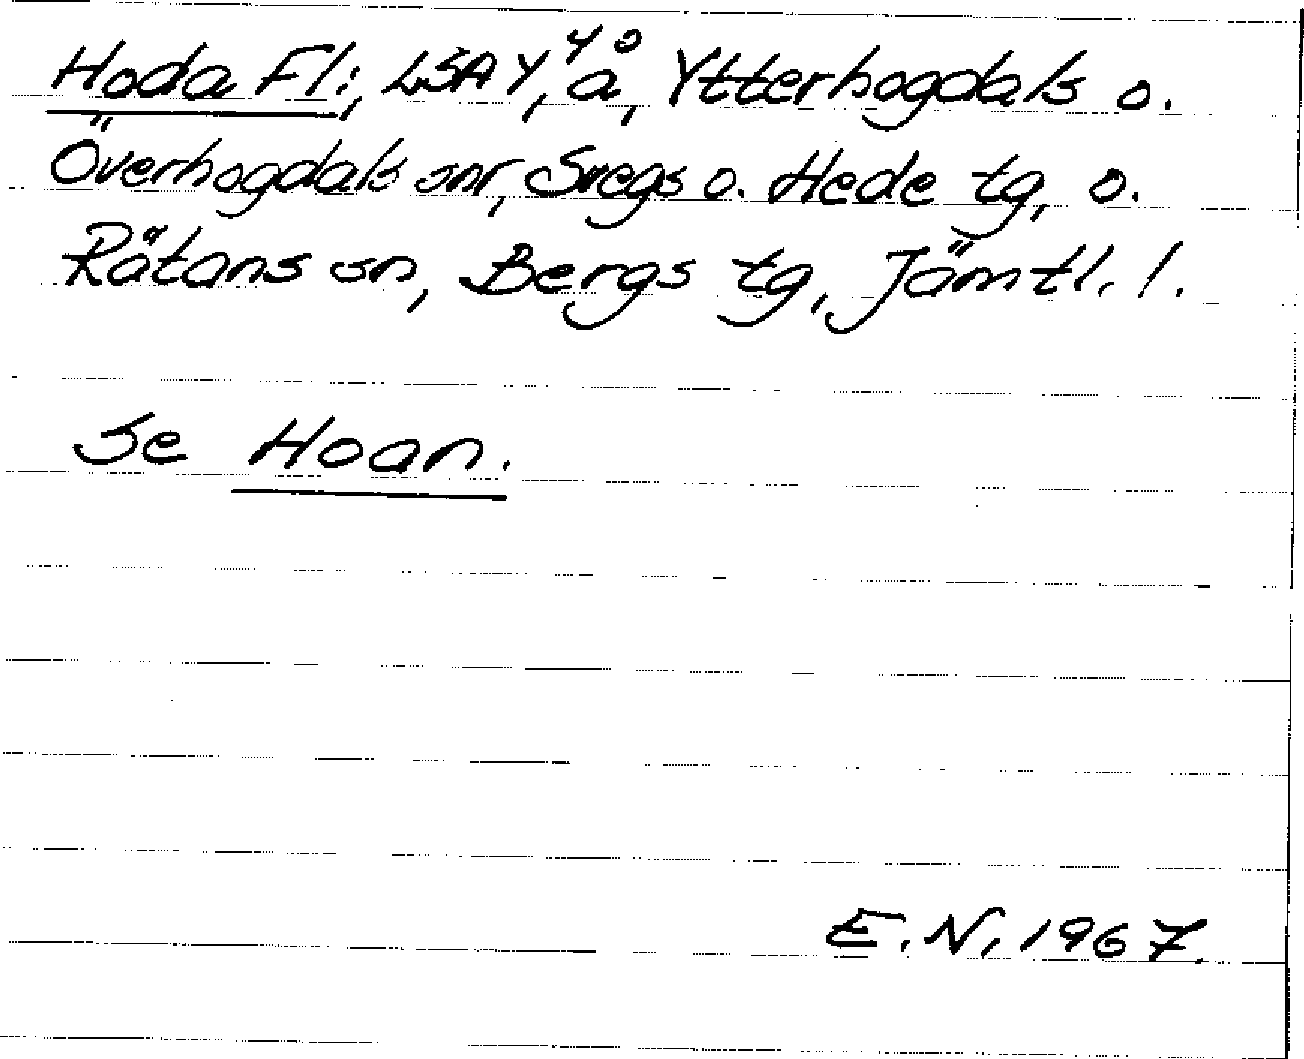 Hoda Fl:, LSA Y, å, Ytterhogdals o.
Överhogdals snr, Svegs o. Hede tg, o.
Rätans sn, Bergs tg, Jämtl. l.
Se Hoan.
E.N, 1967.